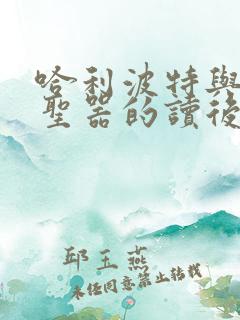 哈利波特與
聖器的讀後
邱玉燕
未經同意禁止轉載